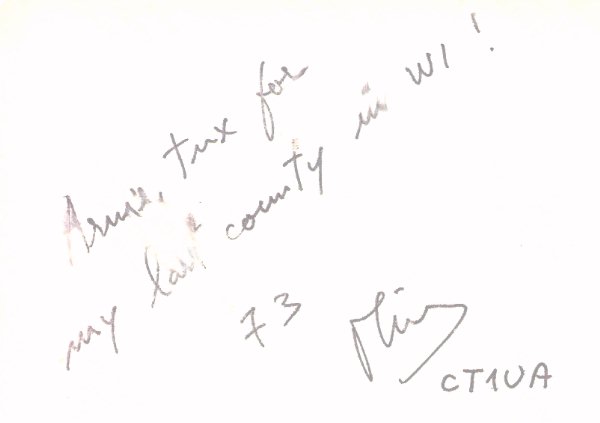 Arnie, tnx for
my last county in WI!
73
CT1UA